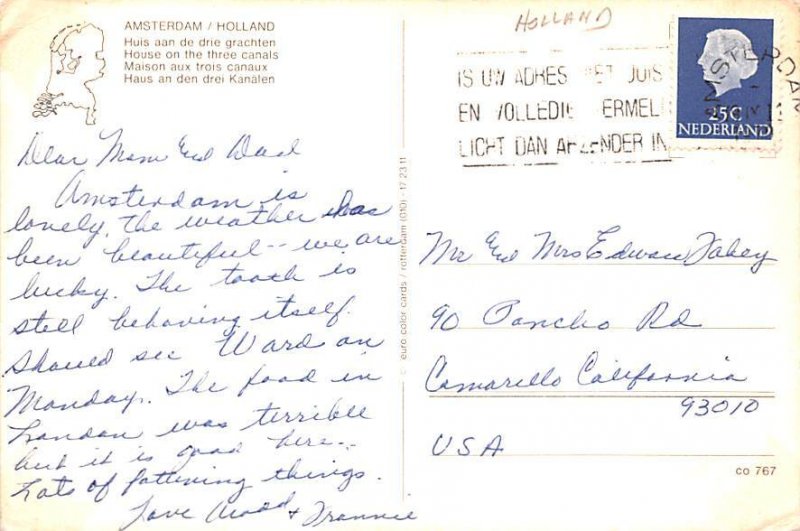 AMSTERDAM / HOLLAND
Huis aan de drie grachten
House on the three canals
Maison aux trois canaux
Haus an den drei Kanälen
HOLLAND
IS UW ADRES JUIS
EN VOLLEDI ERMEL
LICHT DAN AFZENDER IN
AMSTERDAM
25C
NEDERLAND
Dear Mom and Dad
Amsterdam is
lovely. The weather has
been beautiful -- we are
lucky. The tooth is
still behaving itself.
Should see Ward on
Monday. The food in
London was terrible
but it is good here --
Lots of fattening things.
Love + Frannie
euro color cards / rotterdam (010) - 17 23 11
Mr and Mrs Edward Fahey
90 Poncho Rd
Camarillo California
93010
USA
co 767